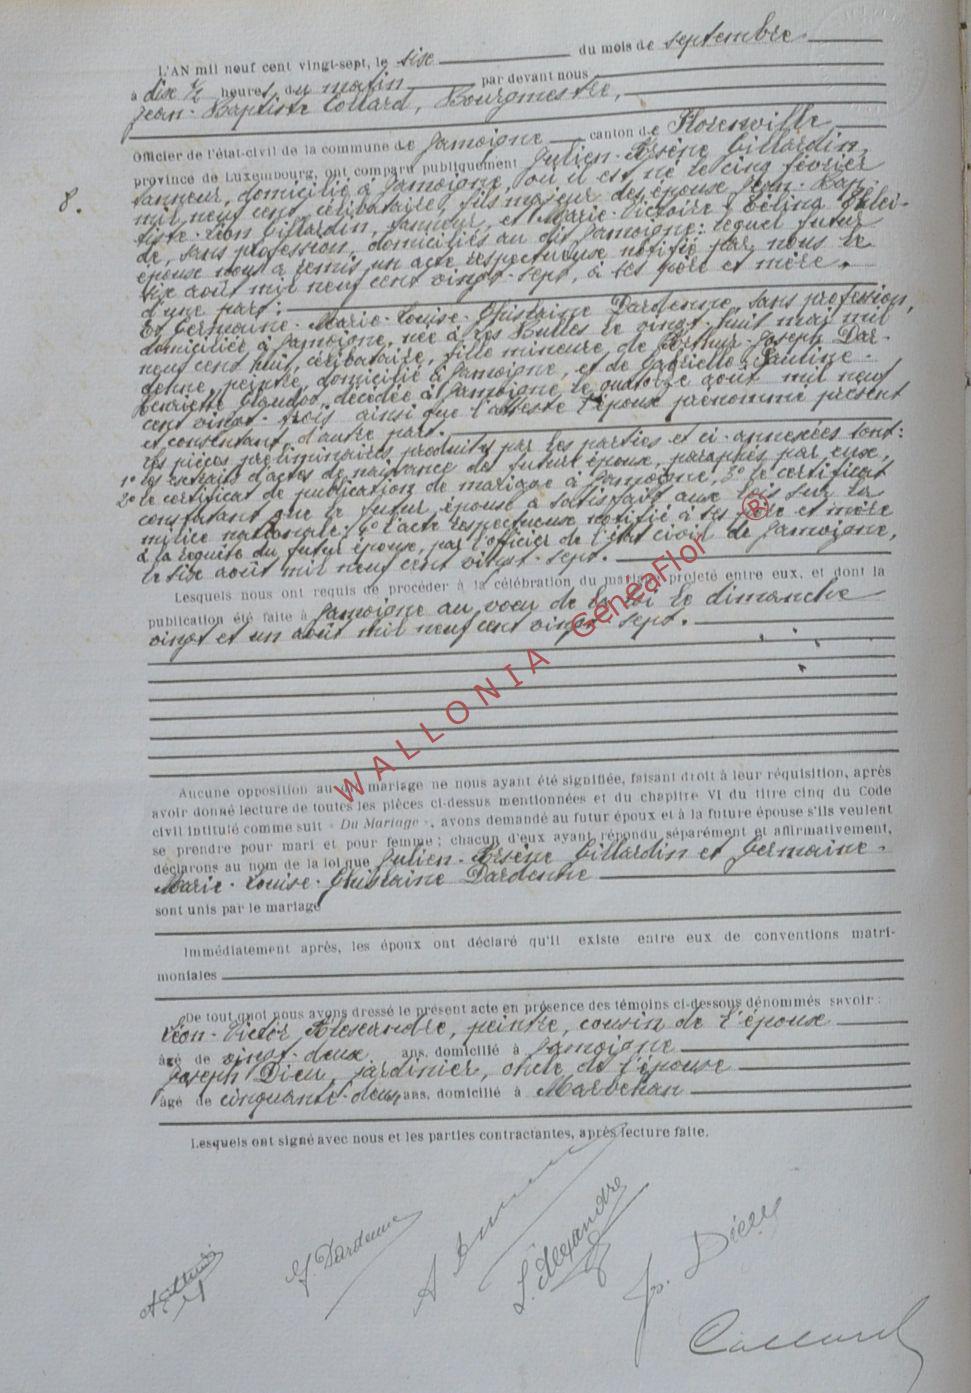 L'AN mil neuf cent vingt-sept, le sixe du mois de septembre
à dixe ½ heures du matin par devant nous
Jean-Baptiste Collard, Bourgmestre,
Officier de l'état-civil de la commune de Jamoigne canton de Florenville
province de Luxembourg, ont comparu publiquement Julien-Arsène Gillardin,
tanneur, domicilié à Jamoigne, où il est né le cinq février
8. mil neuf cent, célibataire, fils majeur des époux Jean-Bap-
tiste-Léon Gillardin, tanneur, et Marie-Victoire-Célina
de, sans profession, domiciliés au dit Jamoigne: lequel futur
épouse nous a remis un acte respectueuse notifié par nous le
sixe août mil neuf cent vingt-sept, à ses père et mère.
d'une part:
Et Germaine-Marie-Louise-Ghislaine Dardenne, sans profession,
domiciliée à Jamoigne, née à Les Bulles le vingt-huit mai mil
neuf cent huit, célibataire, fille mineure de Arthur-Joseph Dar-
denne, peintre, domicilié à Jamoigne, et de Gabrielle-Pauline-
Henriette décédée à Jamoigne le quatorze août mil neuf
cent vingt-trois ainsi que l'atteste l'époux prénommé présent
et consentant, d'autre part.
Les pièces préliminaires produites par les parties et ci-annexées sont:
1° les extraits d'actes de naissance des futurs époux, paraphés par eux,
2° le certificat de publication de mariage à Jamoigne, 3° le certificat
constatant que le futur épouse a satisfait aux lois sur la
milice nationale; 4° l'acte respectueuse notifié à ses père et mère
à la requête du futur époux, par l'officier de l'état civil de Jamoigne,
le sixe août mil neuf cent vingt-sept.
Lesquels nous ont requis de procéder à la célébration du mariage projeté entre eux, et dont la
publication été faite à Jamoigne au voeu de la loi le dimanche
vingt et un août mil neuf cent vingt-sept.
WALLONIA GeneaFlor ®
Aucune opposition au dit mariage ne nous ayant été signifiée, faisant droit à leur réquisition, après
avoir donné lecture de toutes les pièces ci-dessus mentionnées et du chapitre VI du titre cinq du Code
civil intitulé comme suit « Du Mariage », avons demandé au futur époux et à la future épouse s'ils veulent
se prendre pour mari et pour femme; chacun d'eux ayant répondu séparément et affirmativement,
déclarons au nom de la loi que Julien-Arsène Gillardin et Germaine-
Marie-Louise-Ghislaine Dardenne
sont unis par le mariage
Immédiatement après, les époux ont déclaré qu'il existe entre eux de conventions matri-
moniales
De tout quoi nous avons dressé le présent acte en présence des témoins ci-dessous dénommés savoir:
Léon-Victor Alexandre, peintre, cousin de l'époux
âgé de vingt-deux ans, domicilié à Jamoigne
Joseph Dieu, jardinier, oncle de l'épouse
âgé de cinquante-deux ans, domicilié à Marbehan
Lesquels ont signé avec nous et les parties contractantes, après lecture faite.
G. Dardenne
L. Alexandre
Jos. Dieu
Collard